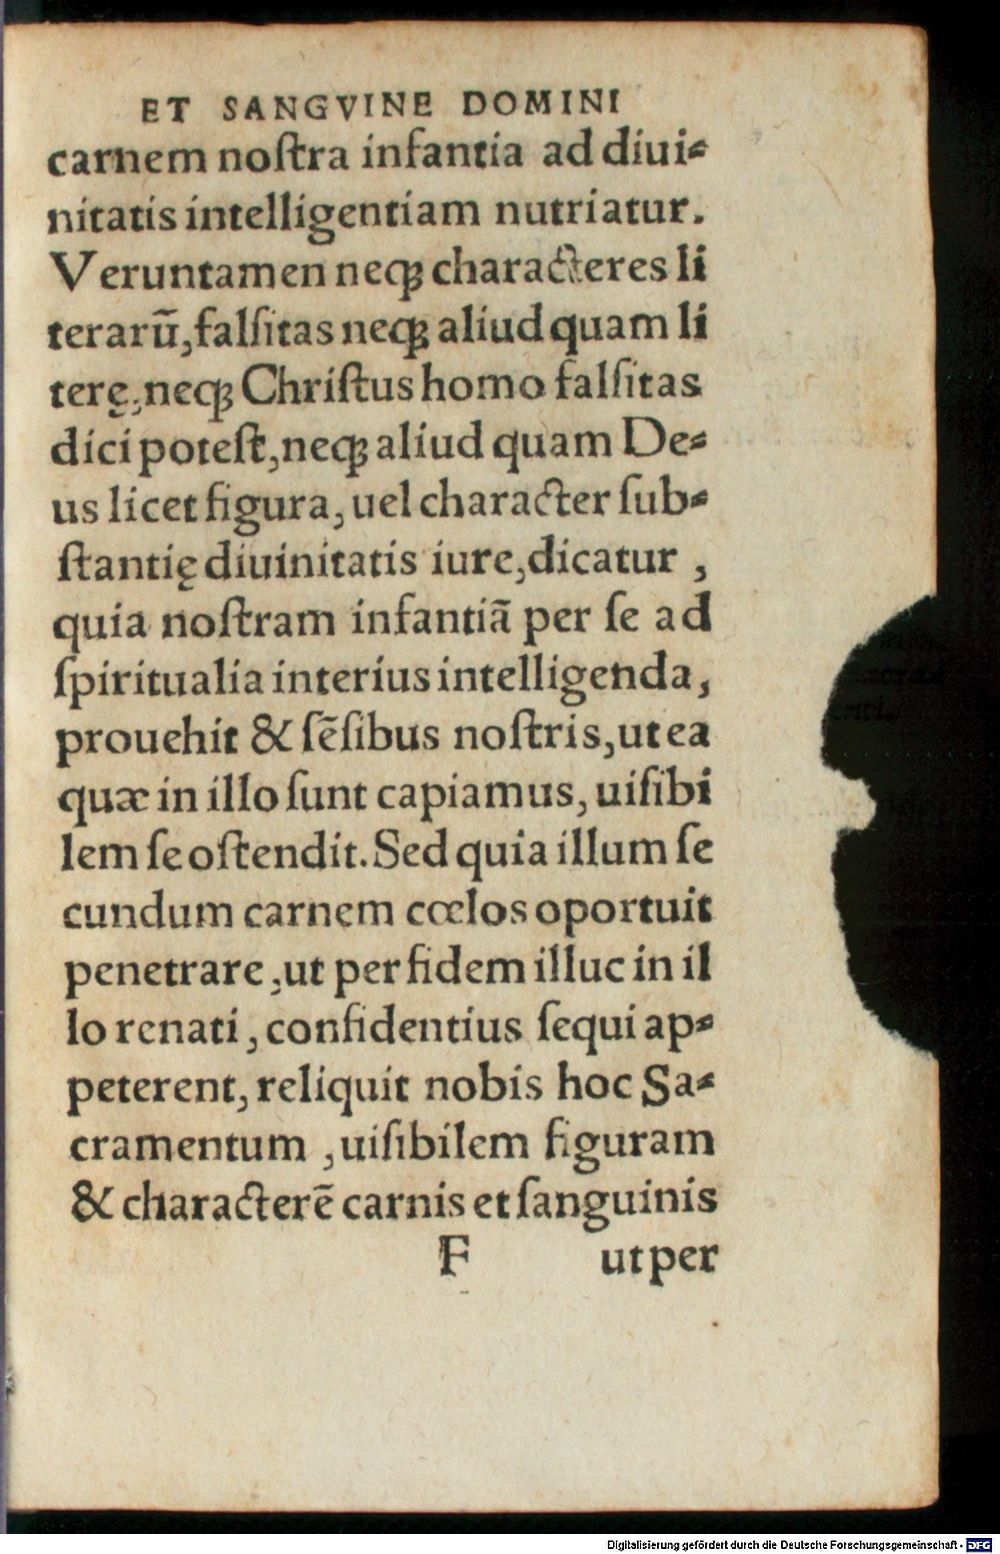 ET SANGVINE DOMINI
carnem noſtra infantia ad diui-
nitatis intelligentiam nutriatur.
Veruntamen neqꝫ characteres li
terarū, falſitas neqꝫ aliud quam li
terę, neqꝫ Chriſtus homo falſitas
dici poteſt, neqꝫ aliud quam De-
us licet figura, uel character ſub-
ſtantię diuinitatis iure, dicatur ,
quia noſtram infantiā per ſe ad
ſpiritualia interius intelligenda,
prouehit & ſēſibus noſtris, ut ea
quæ in illo ſunt capiamus, uiſibi
lem ſe oſtendit. Sed quia illum ſe
cundum carnem cœlos oportuit
penetrare, ut per fidem illuc in il
lo renati, confidentius ſequi ap-
peterent, reliquit nobis hoc Sa-
cramentum , uiſibilem figuram
& characterē carnis et ſanguinis
F ut per
Digitalisierung gefördert durch die Deutsche Forschungsgemeinschaft - DFG